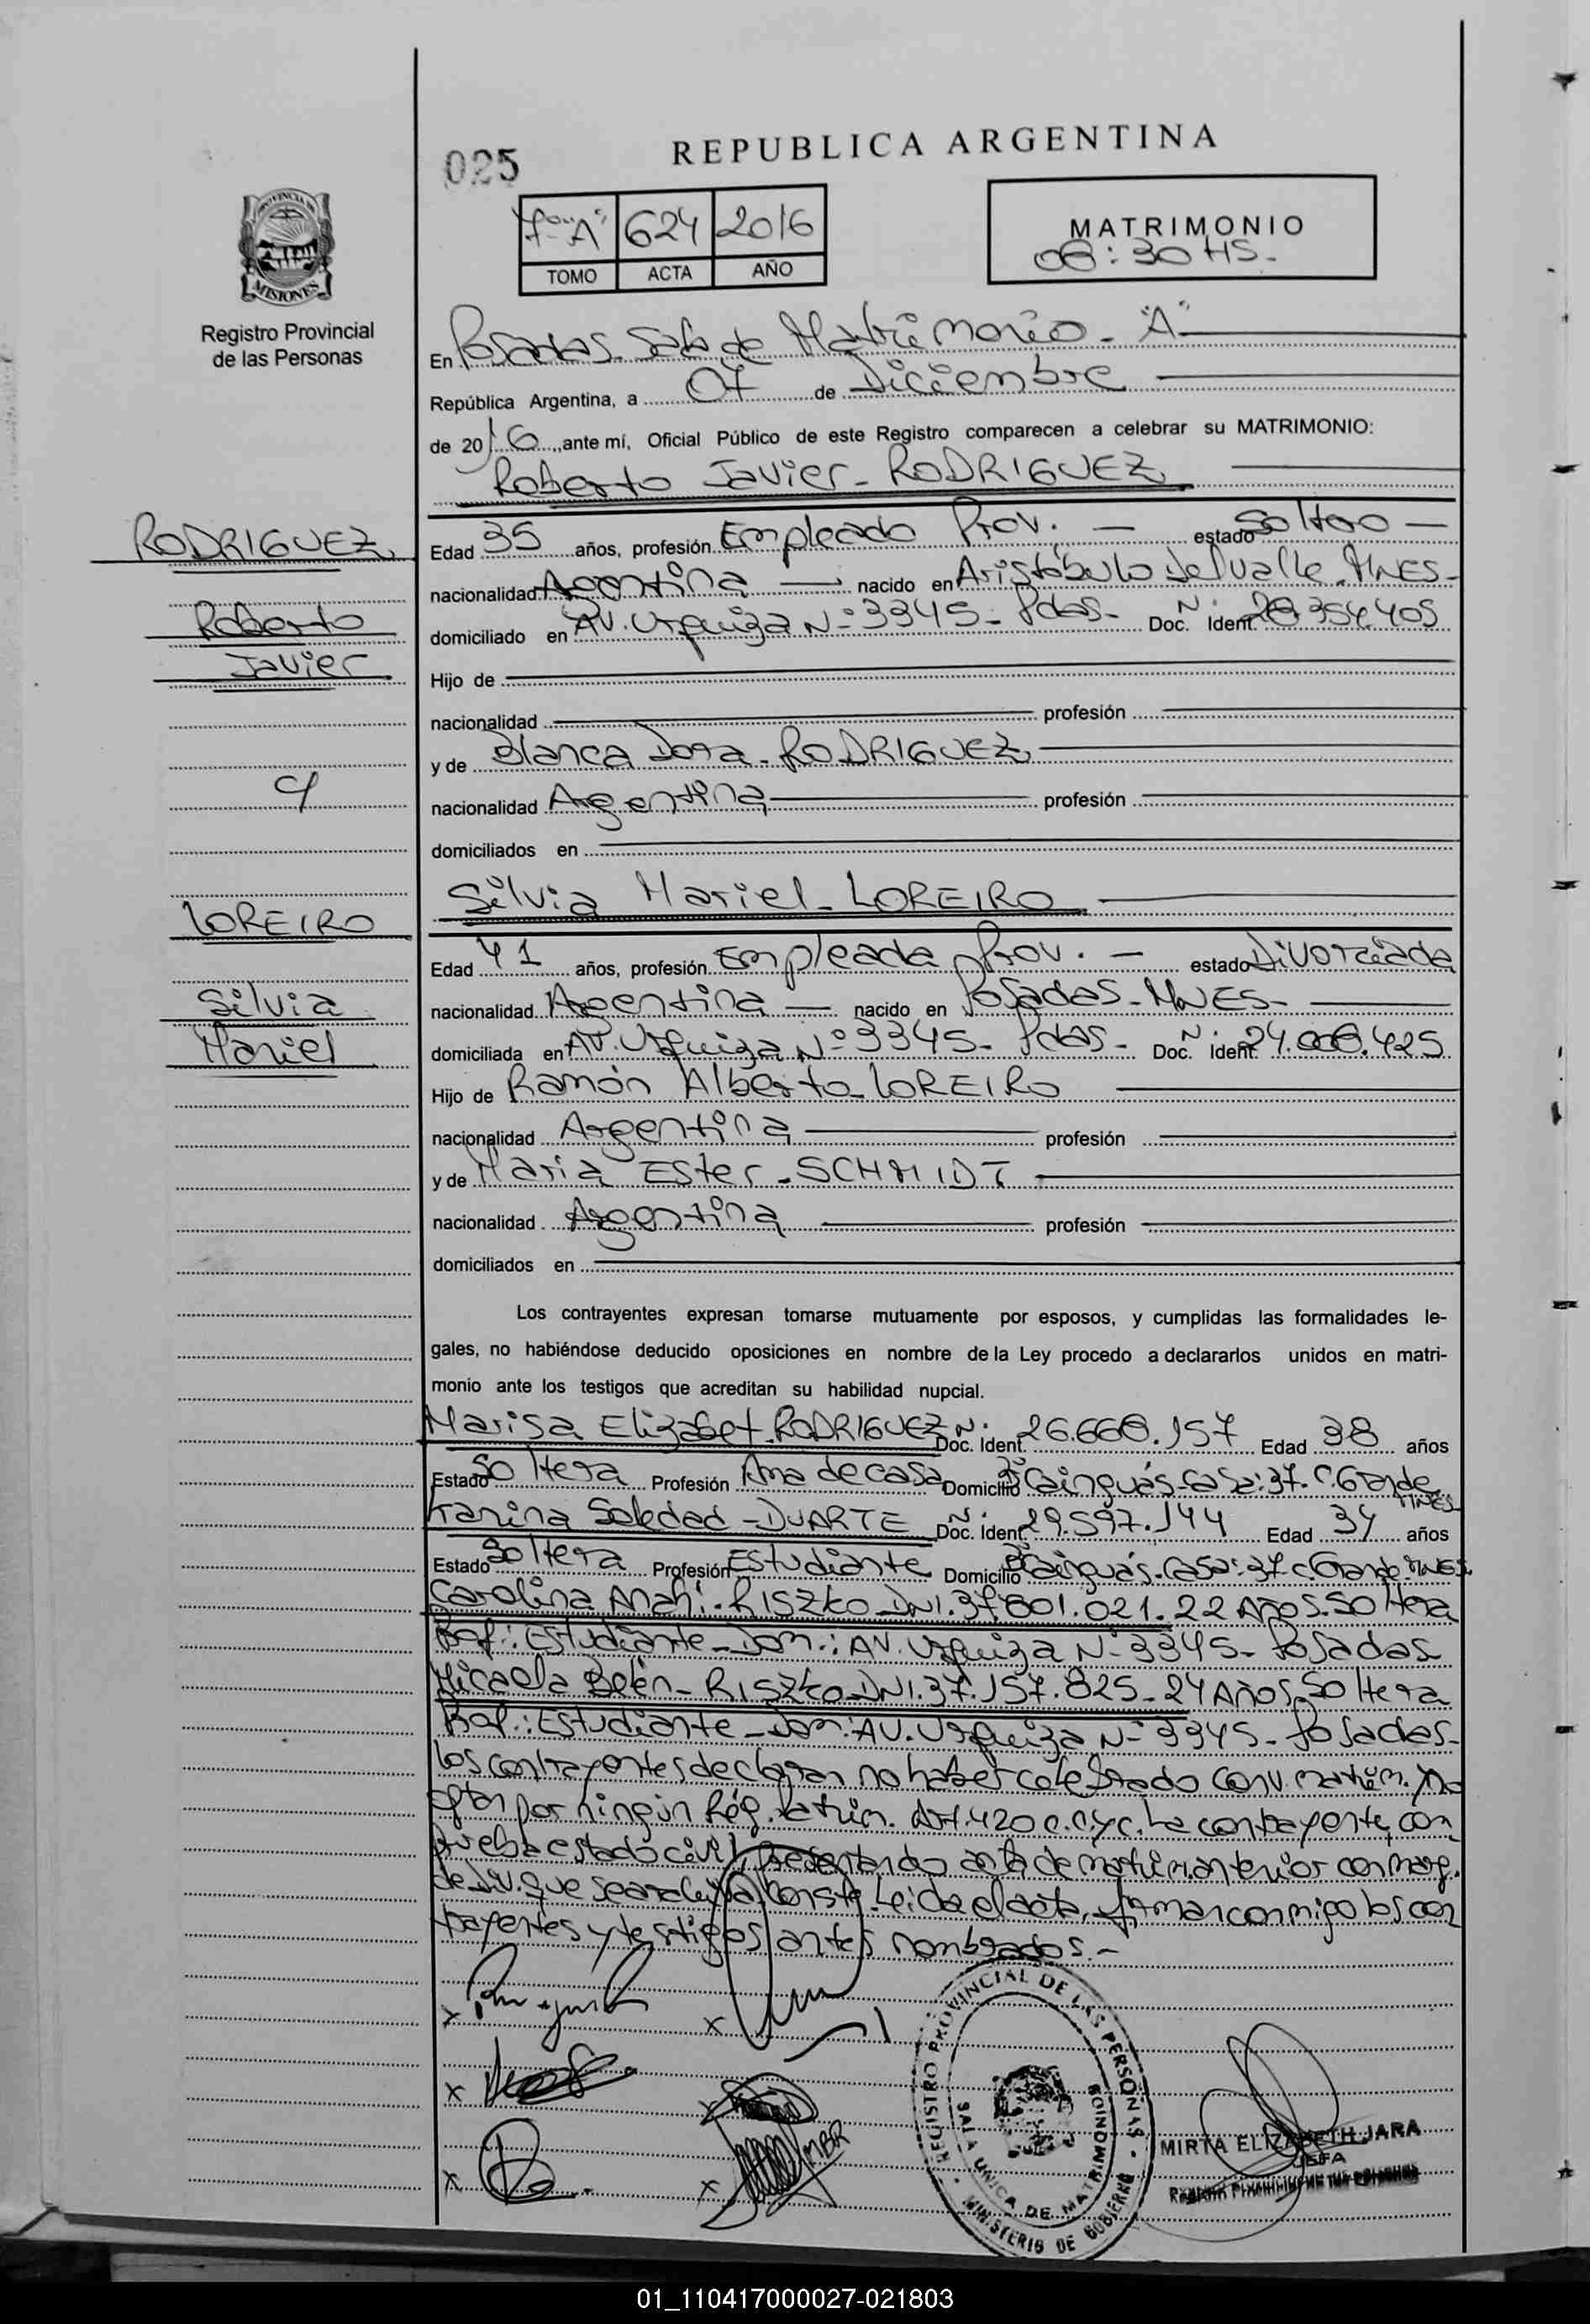 REPUBLICA ARGENTINA
025
7º "A" 624 2016
TOMO ACTA AÑO
MATRIMONIO
08:30 HS.
PROVINCIA DE
MISIONES
Registro Provincial
de las Personas
En Posadas. Sala de Matrimonio - "A"
República Argentina, a 07 de Diciembre
de 2016, ante mí, Oficial Público de este Registro comparecen a celebrar su MATRIMONIO:
Roberto Javier - RODRIGUEZ
RODRIGUEZ
Roberto
Javier
Edad 35 años, profesión Empleado Prov. - estado Soltero -
nacionalidad Argentina - nacido en Aristóbulo del valle. MNES -
domiciliado en AV. Urquiza Nº 3345 - Pdas - Doc. Ident. Nº 28.354.405
Hijo de
nacionalidad profesión
y de Blanca Dora - RODRIGUEZ
c/
nacionalidad Argentina profesión
domiciliados en
Silvia Mariel - LOREIRO
LOREIRO
Silvia
Mariel
Edad 41 años, profesión Empleada Prov. - estado Divorciada
nacionalidad Argentina - nacido en Posadas - MNES -
domiciliada en AV. Urquiza Nº 3345 - Pdas - Doc. Ident. Nº 24.000.425
Hijo de Ramón Alberto - LOREIRO
nacionalidad Argentina profesión
y de Maria Ester - SCHMIDT
nacionalidad Argentina profesión
domiciliados en
Los contrayentes expresan tomarse mutuamente por esposos, y cumplidas las formalidades le-
gales, no habiéndose deducido oposiciones en nombre de la Ley procedo a declararlos unidos en matri-
monio ante los testigos que acreditan su habilidad nupcial.
Marisa Elizabet - RODRIGUEZ Doc. Ident. Nº 26.660.157 Edad 38 años
Estado Soltera Profesión Ama de casa Domicilio Cainguás - Casa: 37 - C. Grande MNES
Karina Soledad - DUARTE Doc. Ident. Nº 29.597.144 Edad 34 años
Estado Soltera Profesión Estudiante Domicilio Cainguás - Casa: 37 C. Grande MNES
Carolina Anahi - RISZKO - DNI. 37.801.021. 22 Años. Soltera
Prof.: Estudiante - Dom.: AV. Urquiza Nº 3345 - Posadas
Micaela Belén - RISZKO DNI. 37.157.825 - 24 Años. Soltera
Prof.: Estudiante - Dom: AV. Urquiza Nº 3345 - Posadas -
los contrayentes declaran no haber celebrado Conv. matrim. y no
optan por ningún Rég. Patrim. Art. 420 C.C.y C. La contrayente, com
prueba estado civil, presentando acta de matrim. anterior con marg.
de Div. que se archiva. Conste. Leida el acta, firman conmigo los con
trayentes y testigos antes nombrados. -
x x
x x
x x MBR
REGISTRO PROVINCIAL DE LAS PERSONAS
SALA UNICA DE MATRIMONIOS
MINISTERIO DE GOBIERNO
MIRTA ELIZABETH JARA
JEFA
01_110417000027-021803